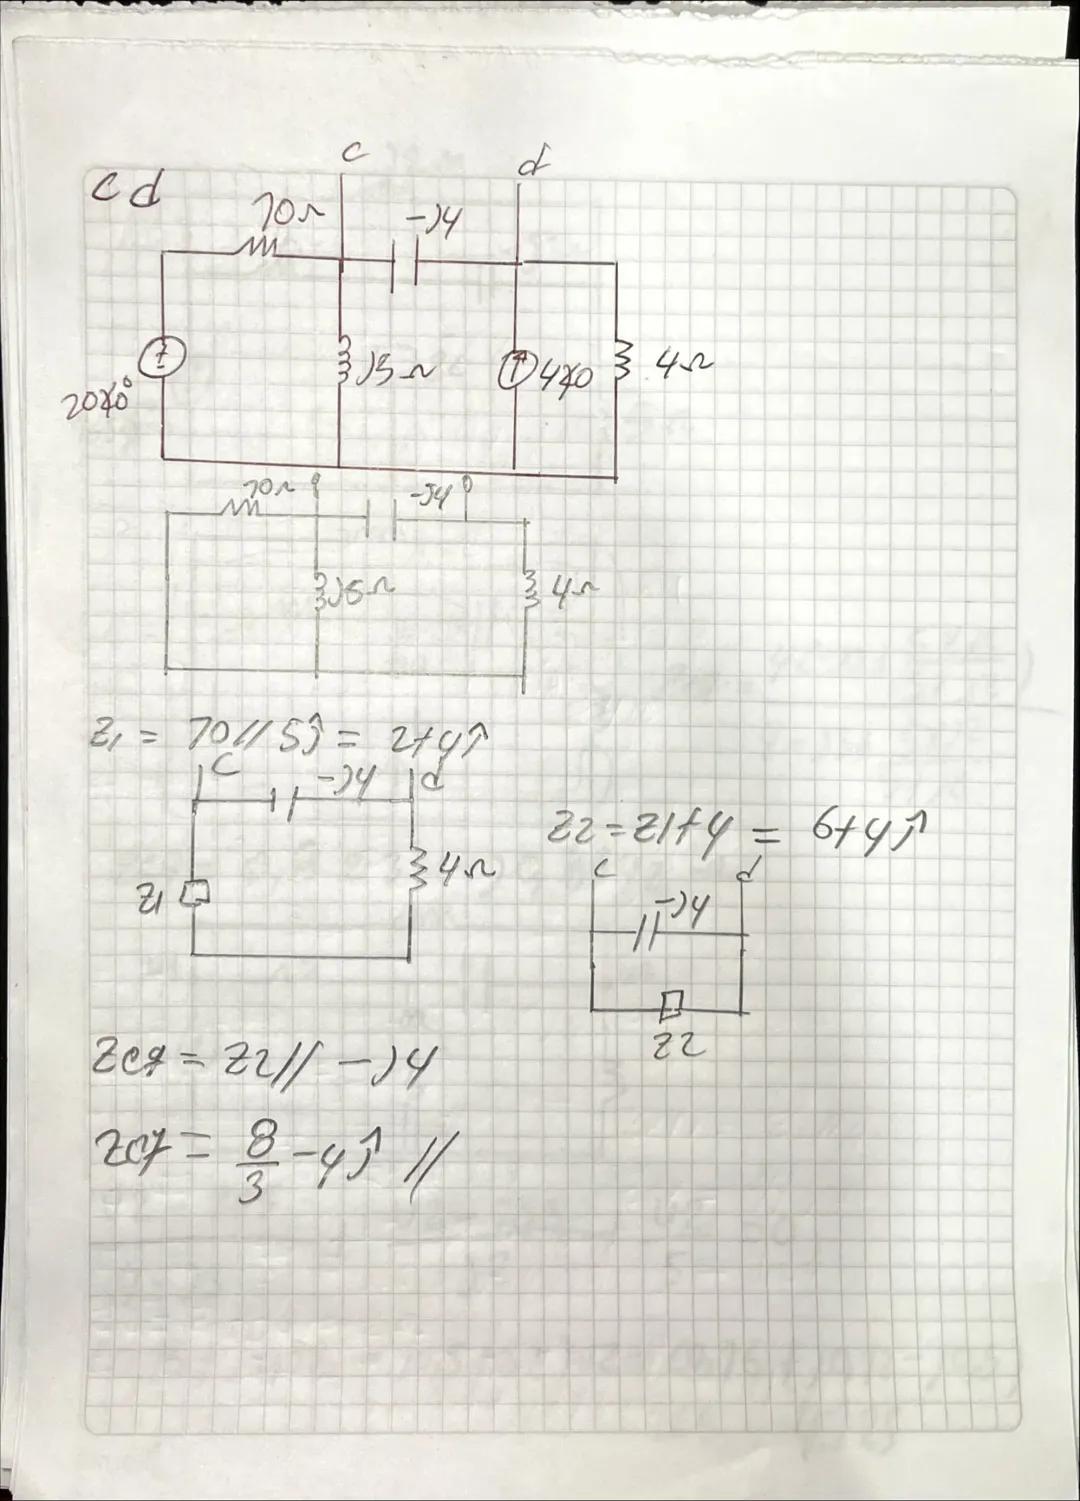 c d
c d
10Ω -j4
20∠0° j5Ω 4∠0 4Ω
10Ω -j4
j5Ω 4Ω
Z1 = 10//5ĵ = 2+4ĵ
c -j4 d
Z1 4Ω
Z2 = Z1+4 = 6+4ĵ
c d
-j4
Z2
Zcd = Z2// -j4
Zcd = 8/3 -4ĵ //